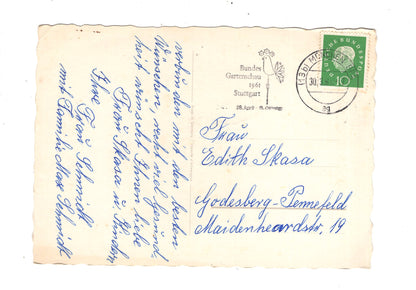 verbunden mit den besten
Wünschen, recht viel Gesund-
heit wünscht Ihnen liebe
Frau Skasa u. Kindern
Ihre
Frau Schmidt
mit Familie Max Schmidt
Bundes
Gartenschau
1961
Stuttgart
28. April
(13b)
30.
ag
DEUTSCHE BUNDESPOST
10
Frau
Edith Skasa
Godesberg-Pennefeld
Maidenheardstr, 19